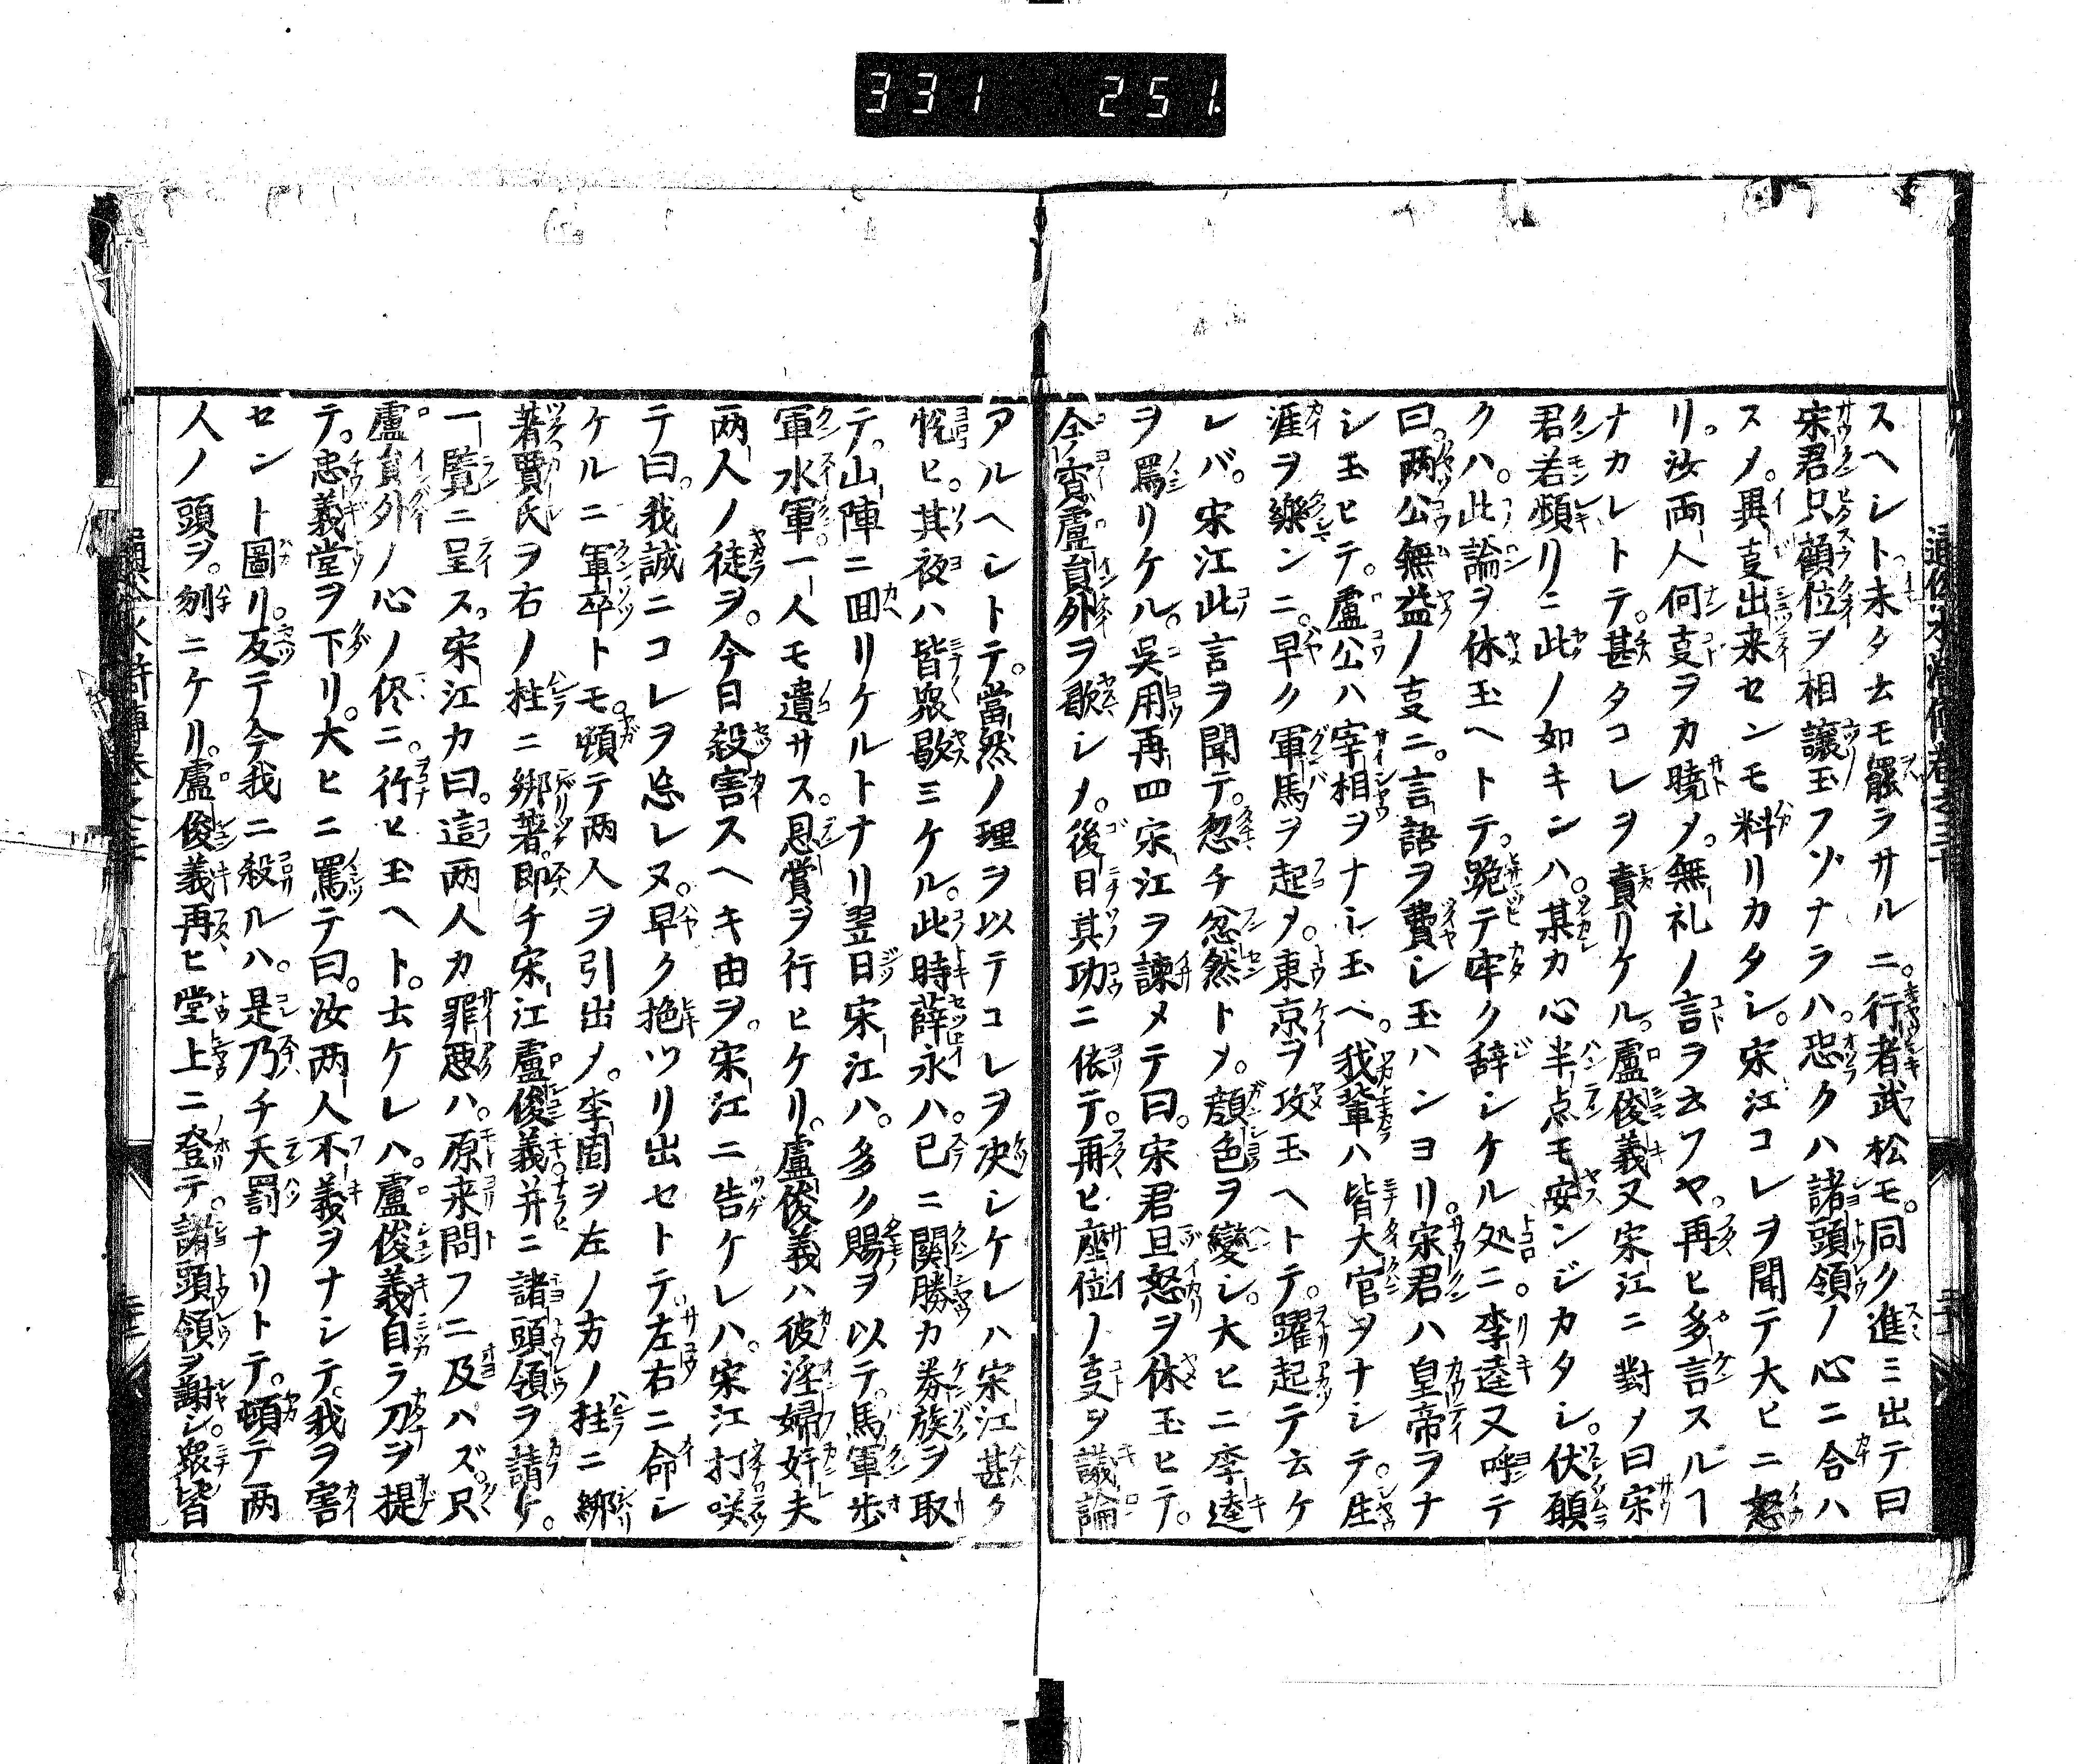 331 251
スヘシト未タ云モ罷ラサルニ。行者武松モ。同ク進ミ出テ曰
宋君只顧位ヲ相讓玉フゾナラハ。恐クハ諸頭領ノ心ニ合ハ
スメ。異亊出来センモ料リカタシ。宋江コレヲ聞テ大ヒニ怒
リ。汝両人何亊ヲカ曉メ。無礼ノ言ヲ云フヤ。再ヒ多言スルヿ
ナカレトテ。甚タコレヲ責リケル。盧俊義又宋江ニ對メ曰宋
君若頻リニ此ノ如キンハ。某カ心半点モ安ンジカタシ。伏願
クハ。此論ヲ休玉ヘトテ。跪テ牢ク辞シケル処ニ。李逵又呼テ
曰。两公無益ノ亊ニ。言語ヲ費シ玉ハンヨリ。宋君ハ皇帝ヲナ
シ玉ヒテ。盧公ハ宰相ヲナシ玉ヘ。我輩ハ皆大官ヲナシテ。生
涯ヲ樂ンニ。早ク軍馬ヲ起メ。東京ヲ攻玉ヘトテ。躍起テ云ケ
レバ。宋江此言ヲ聞テ。忽チ忿然トメ。顔色ヲ變シ。大ヒニ李逵
ヲ罵リケル。吳用再四宋江ヲ諫メテ曰。宋君且怒ヲ休玉ヒテ。
今宵盧員外ヲ歇シメ。後日其功ニ依テ。再ヒ座位ノ亊ヲ議論
アルヘシトテ。當然ノ理ヲ以テコレヲ决シケレハ宋江甚タ
悦ヒ。其夜ハ皆衆歇ミケル。此時薛永ハ。已ニ關勝カ券族ヲ取
テ。山陣ニ回リケルトナリ翌日宋江ハ。多ク賜ヲ以テ。馬軍歩
軍水軍一人モ遺サス。恩賞ヲ行ヒケリ。盧俊義ハ彼淫婦奸夫
两人ノ徒ヲ。今日殺害スヘキ由ヲ。宋江ニ告ケレハ。宋江打咲
テ曰。我誠ニコレヲ忘レヌ。早ク挽ツリ出セトテ。左右ニ命シ
ケルニ軍卒トモ。頓テ两人ヲ引出メ。李固ヲ左ノ方ノ柱ニ綁
著賈氏ヲ右ノ柱ニ綁著。即チ宋江盧俊義并ニ諸頭領ヲ請ケ。
一覧ニ呈ス。宋江カ曰。這两人カ罪惡ハ。原来問フニ及ハズ。只
盧員外ノ心ノ侭ニ。行ヒ玉ヘト。云ケレハ。盧俊義自ラ刀ヲ提
テ。忠義堂ヲ下リ。大ヒニ罵テ曰。汝两人不義ヲナシテ。我ヲ害
セント圖リ。反テ今我ニ殺ルハ。是乃チ天罰ナリトテ。頓テ两
人ノ頭ヲ。刎ニケリ。盧俊義再ヒ堂上ニ登テ。諸頭領ヲ謝シ。衆皆